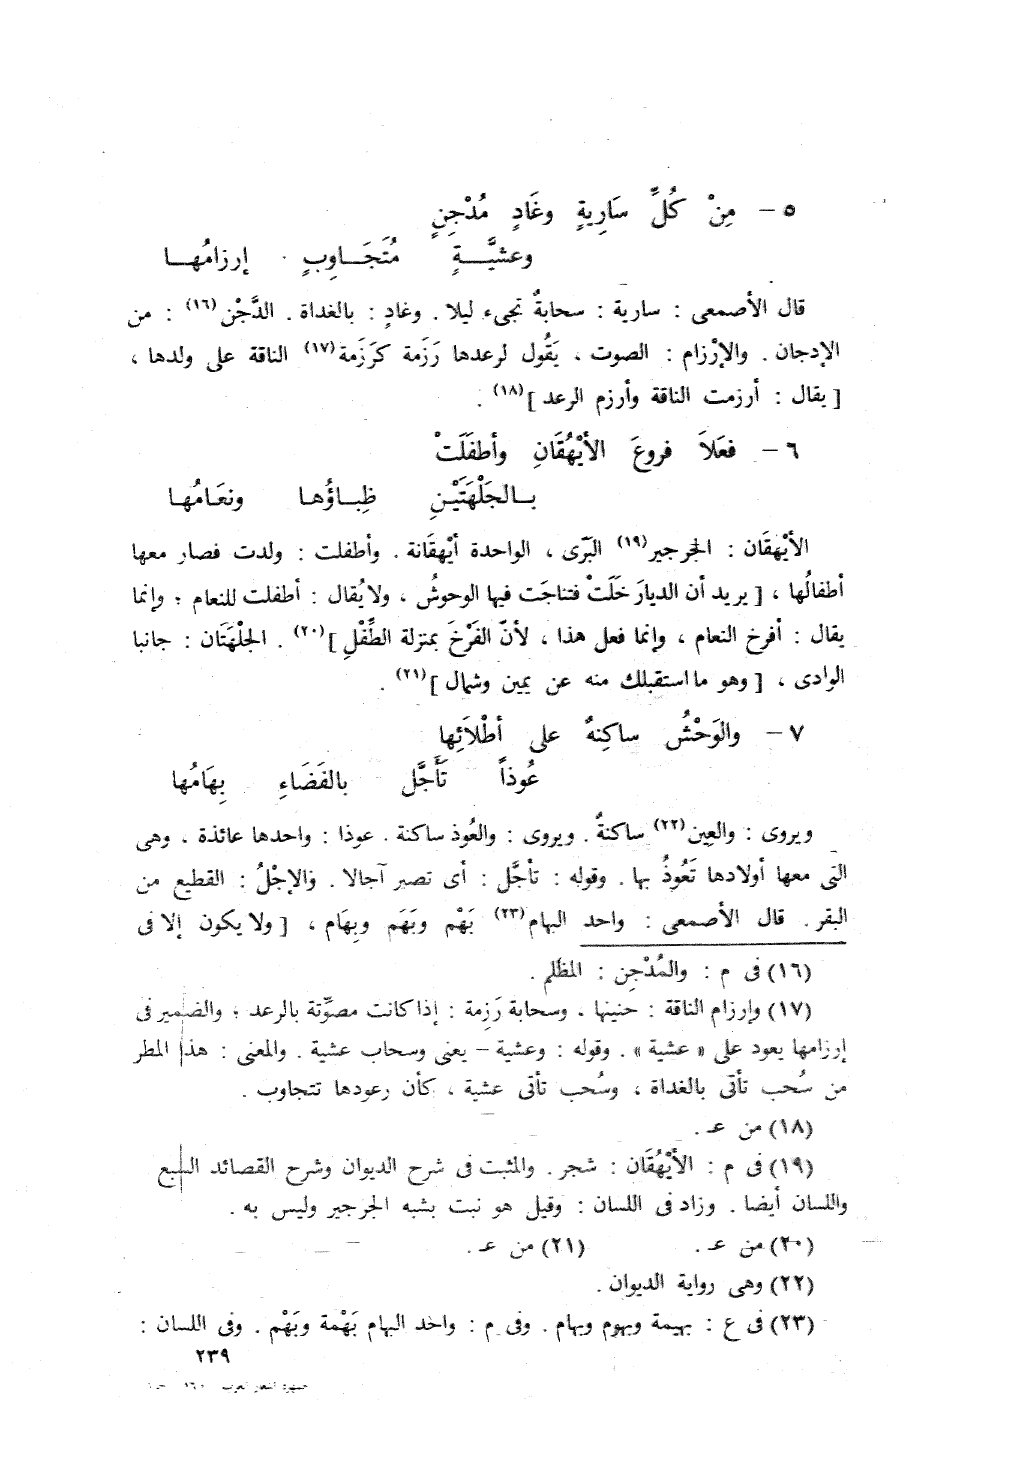 ٥ – مِنْ كُلِّ سَارِيةٍ وغَادٍ مُدْجِنٍ
وعشيَّــةٍ مُتَجَــاوِبٍ إرزامُهــا
قال الأصمعى : سارية : سحابةٌ تجىء ليلا . وغادٍ : بالغداة . الدَّجْن(١٦) : من
الإدجان . والإرْزام : الصوت ، يَقُول لرعدها رَزَمة كرَزَمة(١٧) الناقة على ولدها ،
[ يقال : أرزمت الناقة وأرزم الرعد ](١٨) .
٦ – فعَلاَ فروعَ الأيْهُقَانِ وأطفَلَتْ
بــالجَلْهَتَيْنِ ظِبــاؤُهــا ونعَامُهــا
الأيْهقَان : الجرجير(١٩) البَرّى ، الواحدة أيْهقَانة . وأطفلت : ولدت فصار معها
أطفالُها ، [ يريد أن الديارَ خَلَتْ فتناجَت فيها الوحوشُ ، ولا يُقال : أطفلت للنعام ؛ وإنما
يقال : أفرخ النعام ، وإنما فعل هذا ، لأنّ الفَرْخَ بمنزلة الطِّفْلِ ](٢٠) . الجلْهَتَان : جانبا
الوادى ، [ وهو ما استقبلك منه عن يمين وشمال ](٢١) .
٧ – والوَحْشُ ساكِنةٌ على أطْلاَئِها
عُوذاً تَأَجَّل بالفَضَاءِ بِهَامُها
ويروى : والعِين(٢٢) ساكنةٌ . ويروى : والعُوذ ساكنة . عوذا : واحدها عائذة ، وهى
التى معها أولادها تَعُوذُ بها . وقوله : تأجَّل : أى تصير آجالا . والإجْلُ : القطيع من
البقر . قال الأصمعى : واحد البهام(٢٣) بَهْم وبَهَم وبِهَام ، [ ولا يكون إلا فى
(١٦) فى م : والمُدْجِن : المظلم .
(١٧) وإرزام الناقة : حنينها ، وسحابة رَزِمة : إذا كانت مصوِّتة بالرعد ؛ والضمير فى
إرزامها يعود على « عشية » . وقوله : وعشية – يعنى وسحاب عشية . والمعنى : هذا المطر
من سُحب تأتى بالغداة ، وسُحب تأتى عشية ، كأن رعودها تتجاوب .
(١٨) من عـ .
(١٩) فى م : الأيْهُقَان : شجر . والمثبت فى شرح الديوان وشرح القصائد السبع
واللسان أيضا . وزاد فى اللسان : وقيل هو نبت يشبه الجرجير وليس به .
(٢٠) من عـ . (٢١) من عـ .
(٢٢) وهى رواية الديوان .
(٢٣) فى ع : بهيمة وبهوم وبهام . وفى م : واحد البهام بَهْمة وبَهْم . وفى اللسان :
٢٣٩